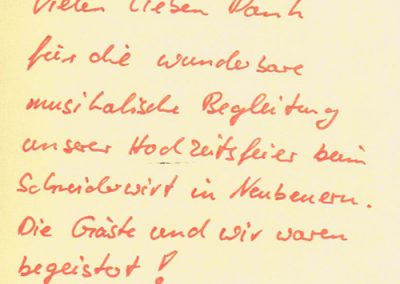 Vielen lieben Dank
für die wunderbare
musikalische Begleitung
unserer Hochzeitsfeier beim
Schneiderwirt in Neubeuern.
Die Gäste und wir waren
begeistert!